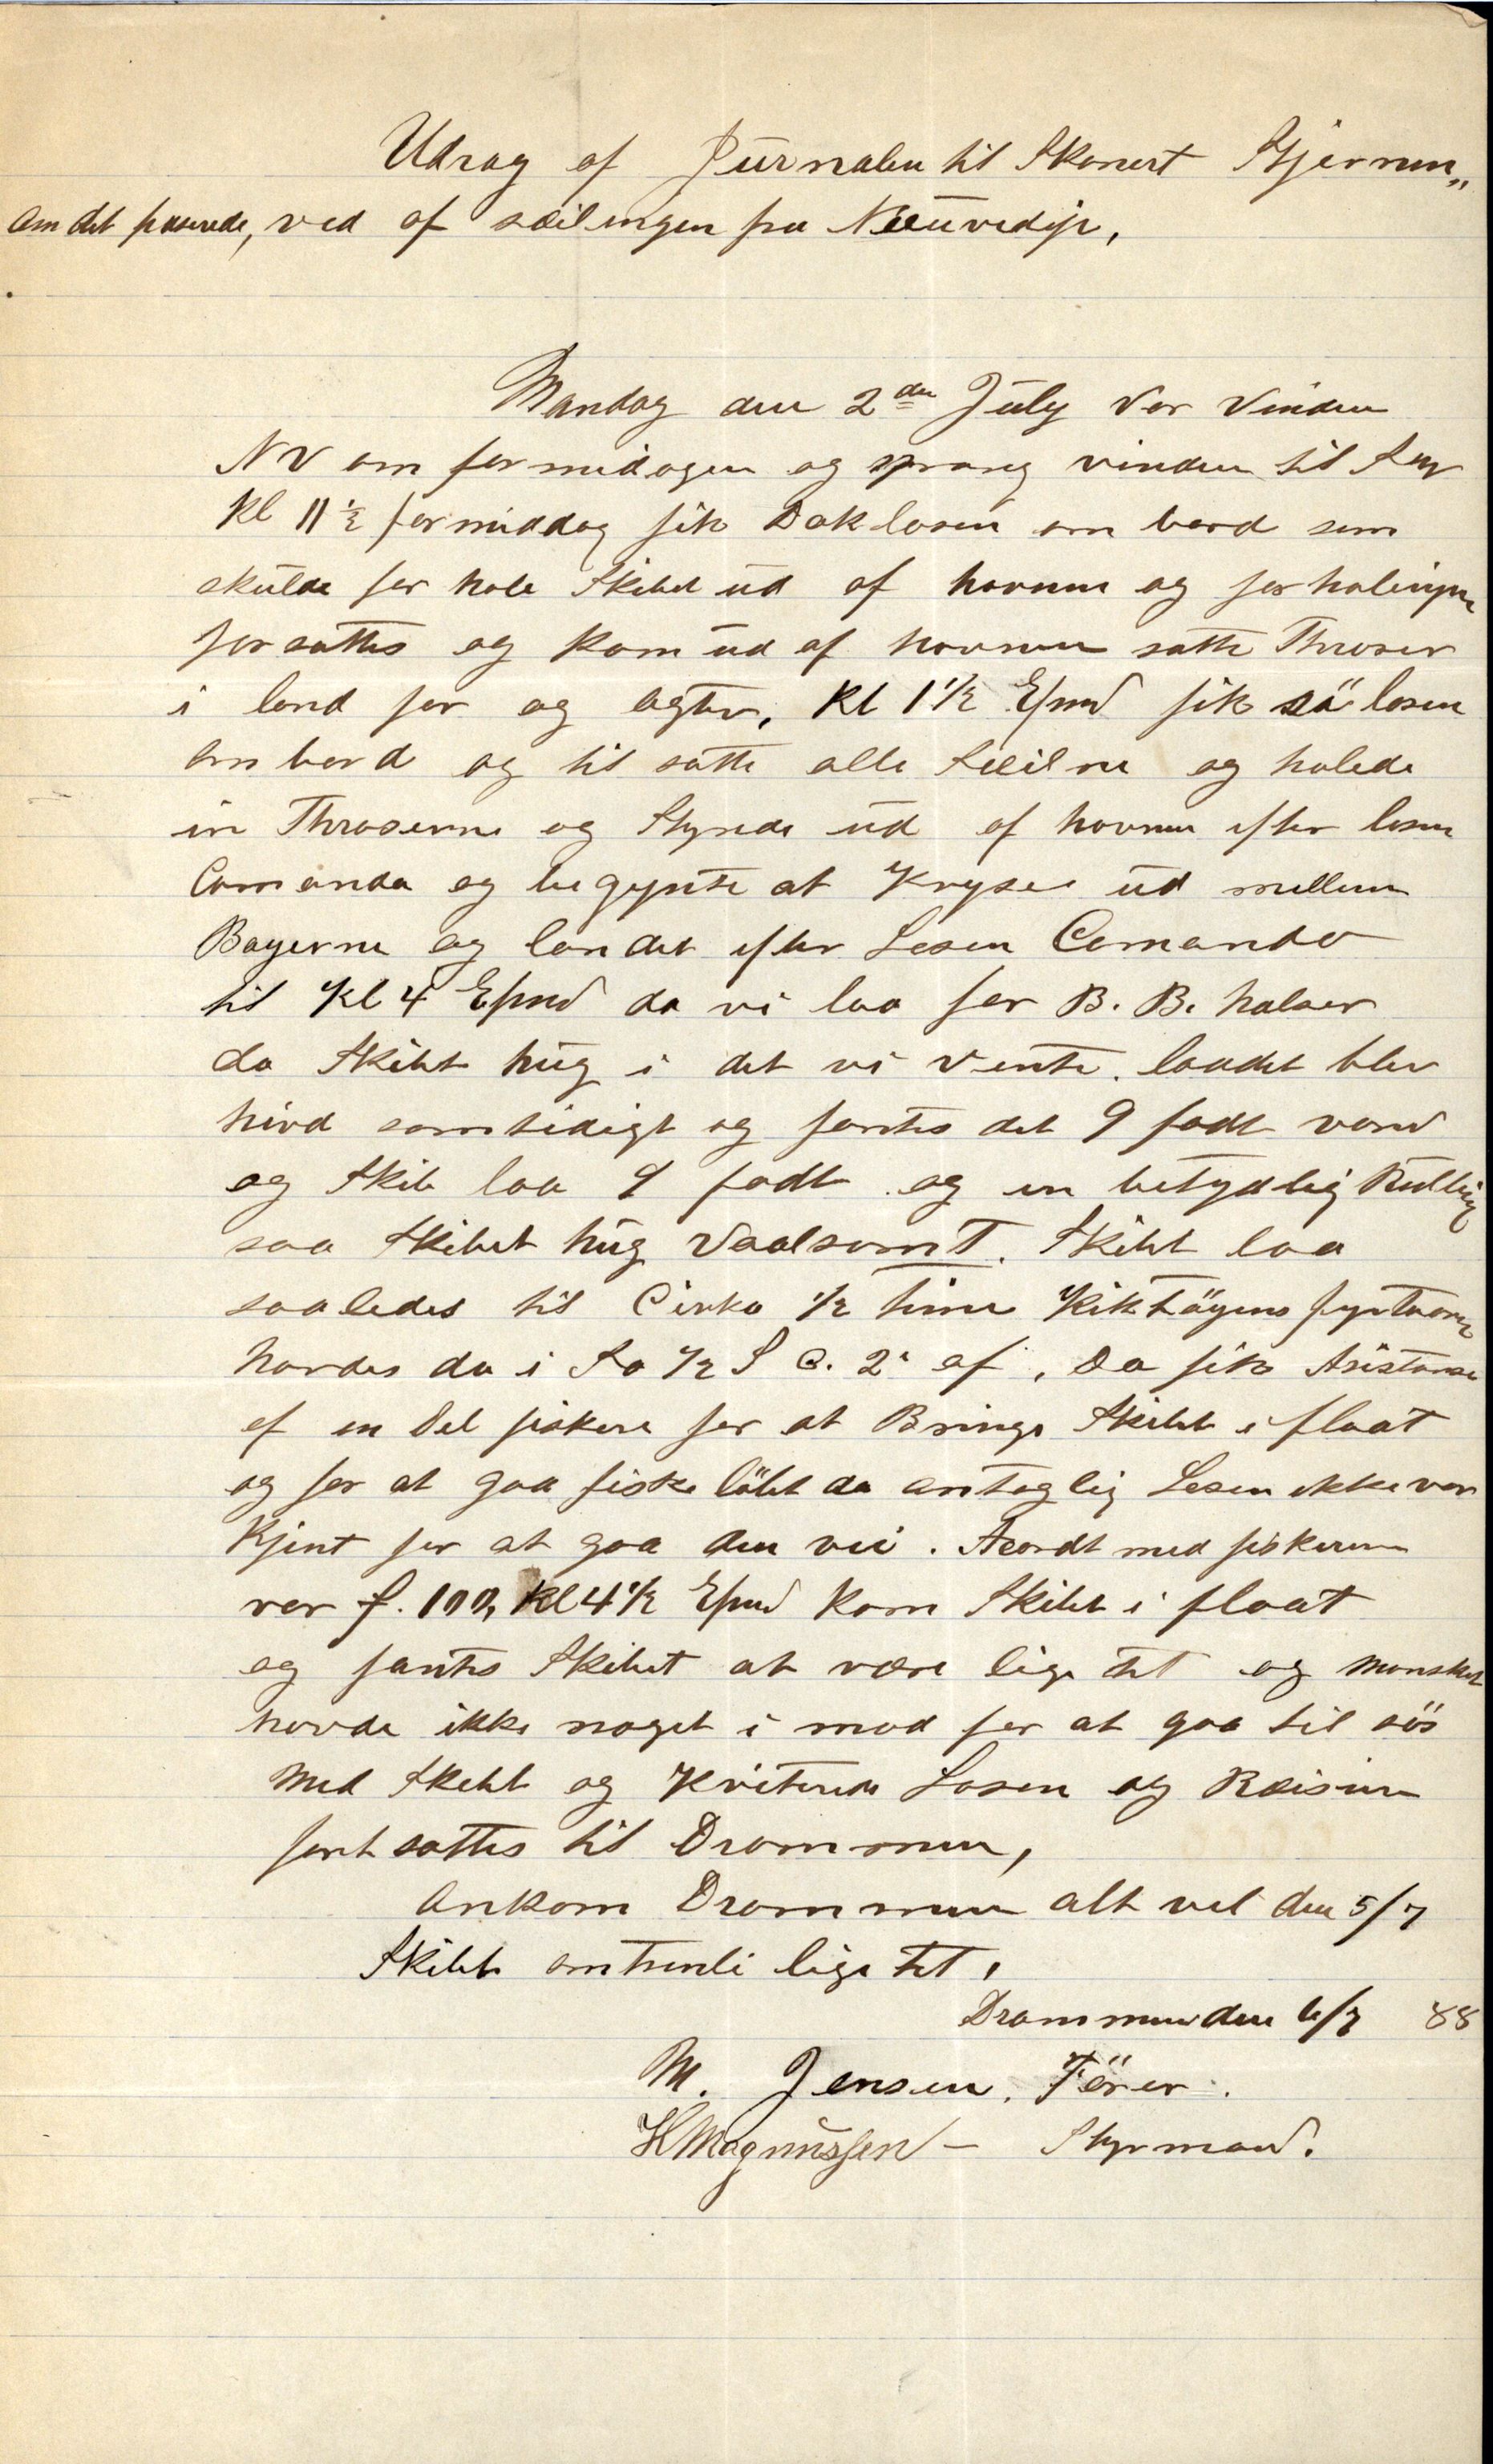 Udrag af Jurnalen til Skonert Stjernen„
om det paserede, ved af seilingen fra Nieuvedip,
Mandag den 2den July Var Vinden
NV om formidagen og sprang vinden til
Kl 11½ formiddag fik Doklosen om bord som
skulde for hale Skibet ud af havnen og forhalingen
forsattes og kom ud af havnen satte Throser
i land for og agter, Kl 1½ Efmd fik sölosen
om bord og til satte alle Seilne og halede
in Throserne og Styrede ud af havnen efter losen
Comando og begynte at Kryse ud mellem
Bøyerne og landet efter Losen Comando
til Kl 4 Efmd da vi laa for B. B. halser
da Skibet hug i det vi vente. loddet blev
hivd samtidigt og fantes det 9 fodt vand
og Skib laa 9 fodt og en betydelig Kulling
saa Skibet hug Voalsomt. Skibet laa
saaledes til Cirka ½ time Kiktöyens fyrtaarn
havdes da i So ½ S C. 2' af, Da fik Asistanse
af en Del fiskere for at Bringe Skibet i flaat
og for at gaa fiske löbet da antaglig Losen ikke var
Kjent for at gaa den vei. Acordt med fiskeren
var f. 100, Kl 4½ Efmd kom Skibet i flaat
og fantes Skibet at være lige tet og Manskab
havde ikke noget i mod for at gaa til sös
Med Skibet og Kviterede Losen og Reisen
fortsattes til Drammen,
Ankom Drammen alt vel den 5/7
Skibet omtrenli lige tet,
Drammen den 6/7 88
M. Jensen. Förer.
H Magnussen – Styrmand.